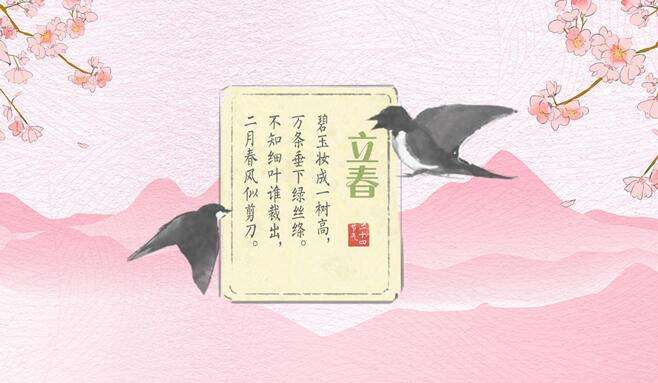 立春
二十四
节气
碧玉妆成一树高，
万条垂下绿丝绦。
不知细叶谁裁出，
二月春风似剪刀。